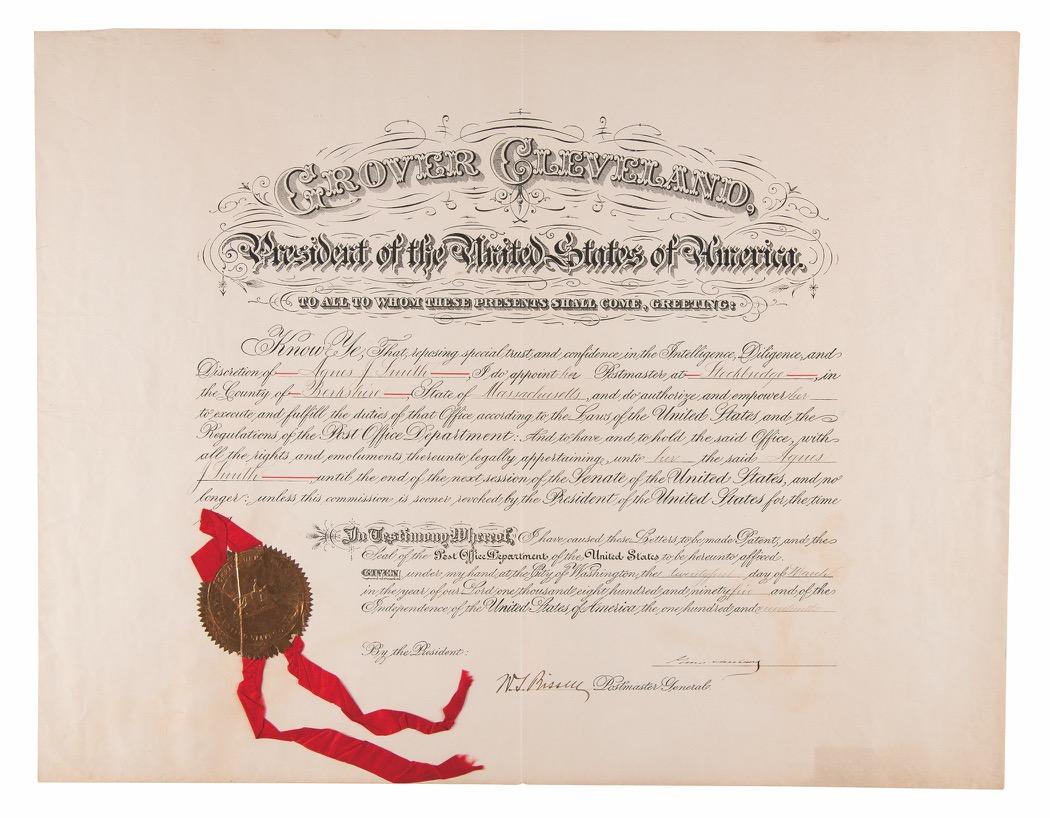 GROVER CLEVELAND,
President of the United States of America.
TO ALL TO WHOM THESE PRESENTS SHALL COME, GREETING:
Know Ye, That, reposing special trust and confidence in the Intelligence, Diligence, and
Discretion of Agnes J Smith, I do appoint her Postmaster at Stockbridge, in
the County of Berkshire, State of Massachusetts, and do authorize and empower her
to execute and fulfill the duties of that Office according to the Laws of the United States and the
Regulations of the Post Office Department: And to have and to hold the said Office, with
all the rights and emoluments thereunto legally appertaining, unto her the said Agnes
J Smith, until the end of the next session of the Senate of the United States, and no
longer; unless this commission is sooner revoked by the President of the United States for the time
In Testimony Whereof, I have caused these Letters to be made Patent, and the
Seal of the Post Office Department of the United States to be hereunto affixed.
GIVEN under my hand, at the City of Washington, the day of March
in the year of our Lord one thousand eight hundred and ninety five and of the
Independence of the United States of America, the one hundred and
By the President:
W.S. Bissell Postmaster General.